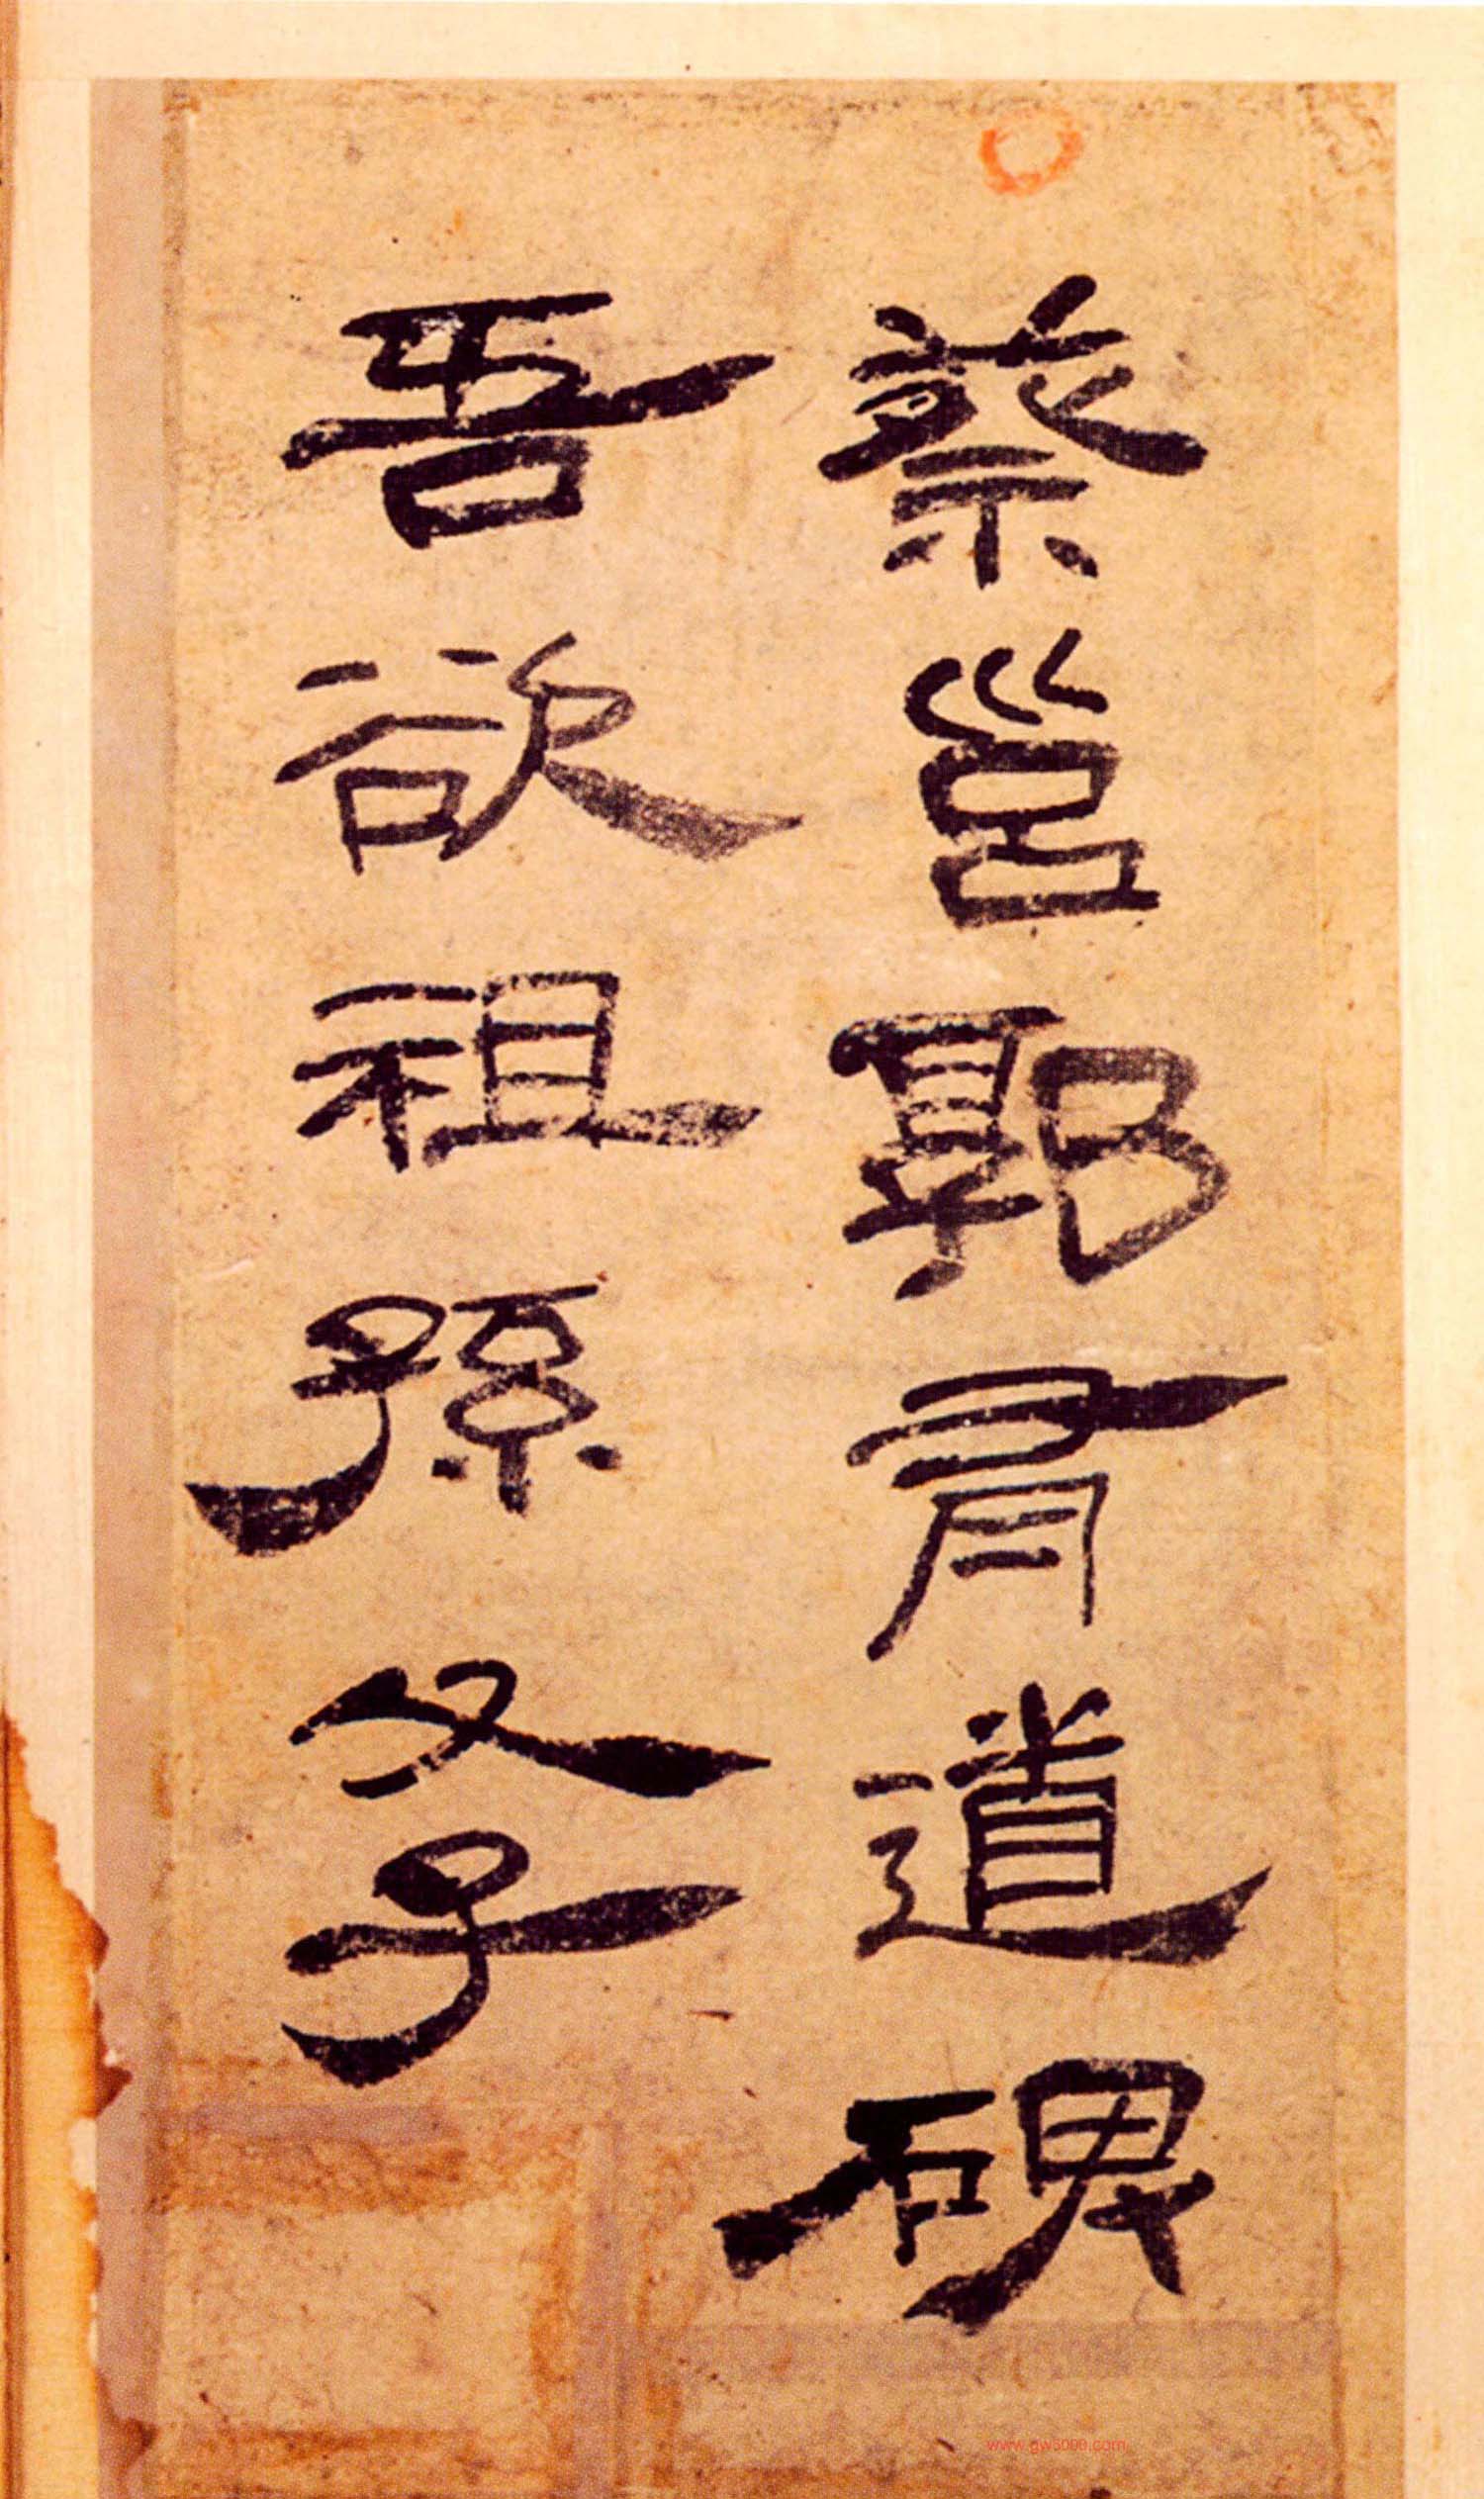 蔡邕郭有道碑
吾欲祖孫父子
www.gw5000.com